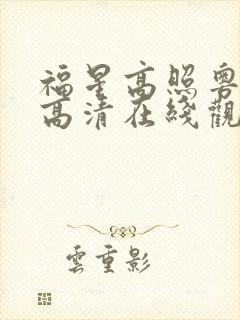 福星高照粵
高清在綫觀
雲重影